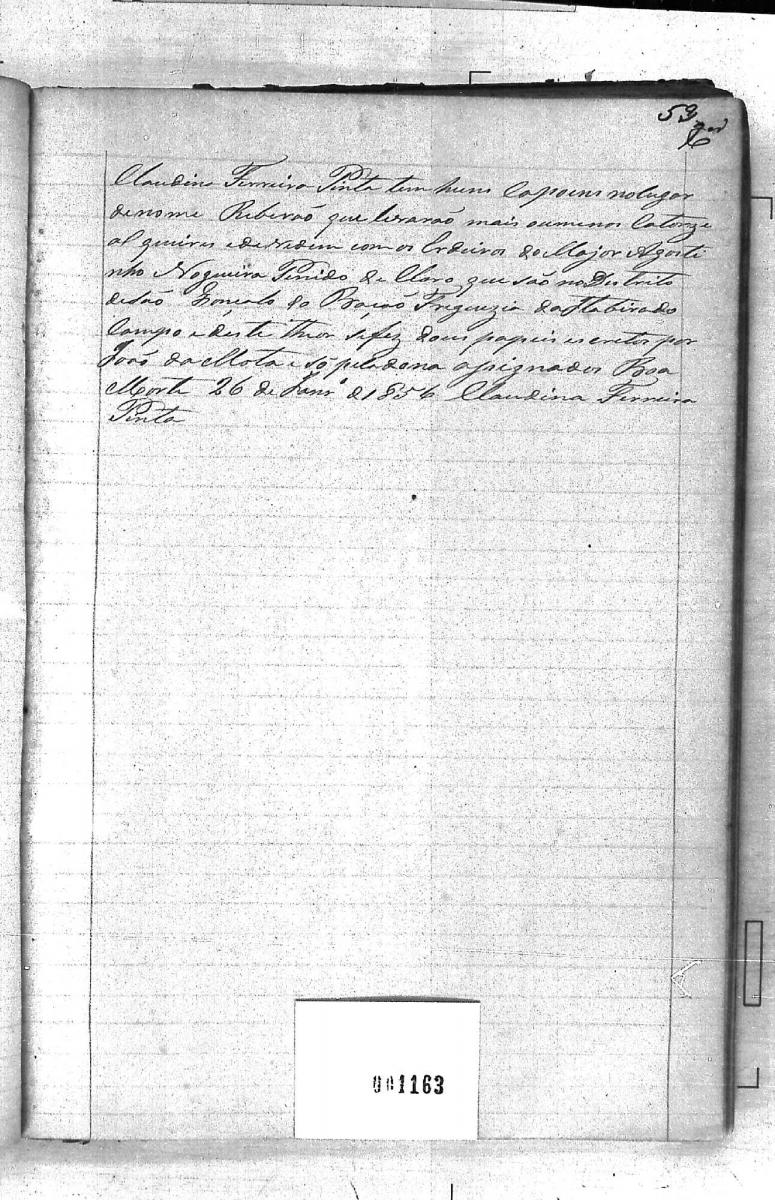 53
Claudina Ferreira Pinta tem huns Capoens no lugar
de nome Riberaõ que levaraõ mais ou menos Catorze
alqueires e devidem com os Erdeiros do Major Agosti
nho Nogueira Penido de Claro que saõ no Destrito
de Saõ Gonçalo do Bacaõ Freguezia da Itabira do
Campo e deste theor se fez dous papeis escretos por
Joaõ da Mota e só pela dona assignados Boa
Morte 26 de Janrº de 1856 Claudina Ferreira
Pinta
001163